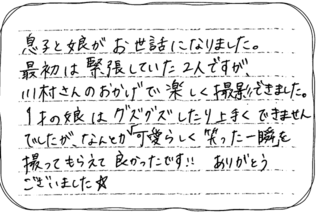 息子と娘がお世話になりました。
最初は緊張していた2人ですが、
川村さんのおかげで楽しく撮影できました。
1才の娘はグズグズしたり上手くできません
でしたが、なんとか可愛らしく笑った一瞬を
撮ってもらえて良かったです!! ありがとう
ございました☆